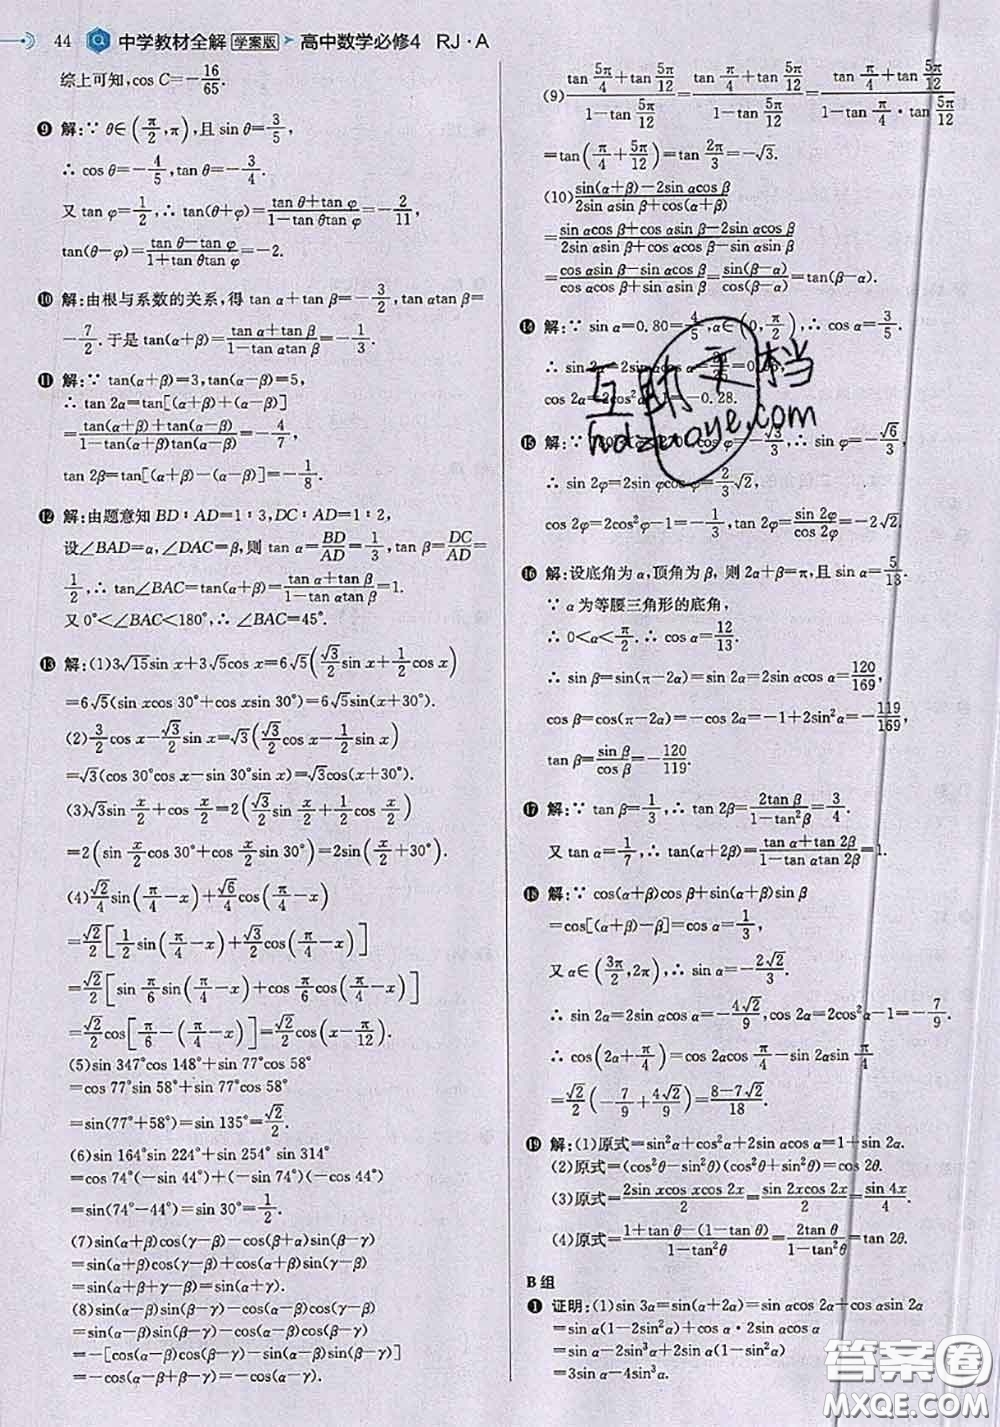 44 中学教材全解 学案版 高中数学必修4 RJ·A
综上可知,cos C=-16/65.
❾ 解:∵ θ∈(π/2,π),且 sin θ=3/5,
∴ cos θ=-4/5,tan θ=-3/4.
又 tan φ=1/2,∴ tan(θ+φ)=(tan θ+tan φ)/(1-tan θtan φ)=-2/11,
tan(θ-φ)=(tan θ-tan φ)/(1+tan θtan φ)=-2.
❿ 解:由根与系数的关系,得 tan α+tan β=-3/2,tan αtan β=
-7/2.于是 tan(α+β)=(tan α+tan β)/(1-tan αtan β)=-1/3.
⓫ 解:∵ tan(α+β)=3,tan(α-β)=5,
∴ tan 2α=tan[(α+β)+(α-β)]
=(tan(α+β)+tan(α-β))/(1-tan(α+β)tan(α-β))=-4/7,
tan 2β=tan[(α+β)-(α-β)]=-1/8.
⓬ 解:由题意知 BD∶AD=1∶3,DC∶AD=1∶2,
设∠BAD=α,∠DAC=β,则 tan α=BD/AD=1/3,tan β=DC/AD=
1/2,∴ tan∠BAC=tan(α+β)=(tan α+tan β)/(1-tan αtan β)=1.
又 0°<∠BAC<180°,∴ ∠BAC=45°.
⓭ 解:(1)3√15sin x+3√5cos x=6√5(√3/2sin x+1/2cos x)
=6√5(sin xcos 30°+cos xsin 30°)=6√5sin(x+30°).
(2)3/2cos x-√3/2sin x=√3(√3/2cos x-1/2sin x)
=√3(cos 30°cos x-sin 30°sin x)=√3cos(x+30°).
(3)√3sin x/2+cos x/2=2(√3/2sin x/2+1/2cos x/2)
=2(sin x/2cos 30°+cos x/2sin 30°)=2sin(x/2+30°).
(4)√2/4sin(π/4-x)+√6/4cos(π/4-x)
=√2/2[1/2sin(π/4-x)+√3/2cos(π/4-x)]
=√2/2[sin π/6sin(π/4-x)+cos π/6cos(π/4-x)]
=√2/2cos[π/6-(π/4-x)]=√2/2cos(x-π/12).
(5)sin 347°cos 148°+sin 77°cos 58°
=cos 77°sin 58°+sin 77°cos 58°
=sin(77°+58°)=sin 135°=√2/2.
(6)sin 164°sin 224°+sin 254° sin 314°
=cos 74°(-sin 44°)+sin 74°cos 44°
=sin(74°-44°)=sin 30°=1/2.
(7)sin(α+β)cos(γ-β)-cos(β+α)sin(β-γ)
=sin(α+β)cos(β-γ)-cos(α+β)sin(β-γ)
=sin(α+β-β+γ)=sin(α+γ).
(8)sin(α-β)sin(β-γ)-cos(α-β)cos(γ-β)
=sin(α-β)sin(β-γ)-cos(α-β)cos(β-γ)
=-[cos(α-β)cos(β-γ)-sin(α-β)sin(β-γ)]
=-cos(α-β+β-γ)=-cos(α-γ).
(9)(tan 5π/4+tan 5π/12)/(1-tan 5π/12)=(tan π/4+tan 5π/12)/(1-tan 5π/12)=(tan π/4+tan 5π/12)/(1-tan π/4·tan 5π/12)
=tan(π/4+5π/12)=tan 2π/3=-√3.
(10)(sin(α+β)-2sin αcos β)/(2sin αsin β+cos(α+β))
=(sin αcos β+cos αsin β-2sin αcos β)/(2sin αsin β+cos αcos β-sin αsin β)
=(cos αsin β-sin αcos β)/(cos αcos β+sin αsin β)=sin(β-α)/cos(β-α)=tan(β-α).
⓮ 解:∵ sin α=0.80=4/5,α∈(0,π/2),∴ cos α=3/5.
∴ sin 2α=2sin αcos α=24/25=0.96,
cos 2α=2cos²α-1=-0.28.
⓯ 解:∵ 180°<φ<270°,cos φ=-√3/3,∴ sin φ=-√6/3.
∴ sin 2φ=2sin φcos φ=2/3√2,
cos 2φ=2cos²φ-1=-1/3,tan 2φ=sin 2φ/cos 2φ=-2√2.
⓰ 解:设底角为 α,顶角为 β,则 2α+β=π,且 sin α=5/13.
∵ α 为等腰三角形的底角,
∴ 0<α<π/2.∴ cos α=12/13.
∴ sin β=sin(π-2α)=sin 2α=2sin αcos α=120/169,
cos β=cos(π-2α)=-cos 2α=-1+2sin²α=-119/169,
tan β=sin β/cos β=-120/119.
⓱ 解:∵ tan β=1/3,∴ tan 2β=2tan β/(1-tan²β)=3/4.
又 tan α=1/7,∴ tan(α+2β)=(tan α+tan 2β)/(1-tan αtan 2β)=1.
⓲ 解:∵ cos(α+β)cos β+sin(α+β)sin β
=cos[(α+β)-β]=cos α=1/3,
又 α∈(3π/2,2π),∴ sin α=-2√2/3.
∴ sin 2α=2sin αcos α=-4√2/9,cos 2α=2cos²α-1=-7/9.
∴ cos(2α+π/4)=cos 2αcos π/4-sin 2αsin π/4
=√2/2(-7/9+4√2/9)=(8-7√2)/18.
⓳ 解:(1)原式=sin²α+cos²α+2sin αcos α=1+sin 2α.
(2)原式=(cos²θ-sin²θ)(cos²θ+sin²θ)=cos 2θ.
(3)原式=2sin xcos xcos 2x/2=sin 2xcos 2x/2=sin 4x/4.
(4)原式=(1+tan θ-(1-tan θ))/(1-tan²θ)=2tan θ/(1-tan²θ)=tan 2θ.
B 组
❶ 证明:(1)sin 3α=sin(α+2α)=sin αcos 2α+cos αsin 2α
=sin α(1-2sin²α)+cos α·2sin αcos α
=sin α-2sin³α+2sin α(1-sin²α)
=3sin α-4sin³α.
互助文档
hdzuoye.com
答案圈
MXQE.COM